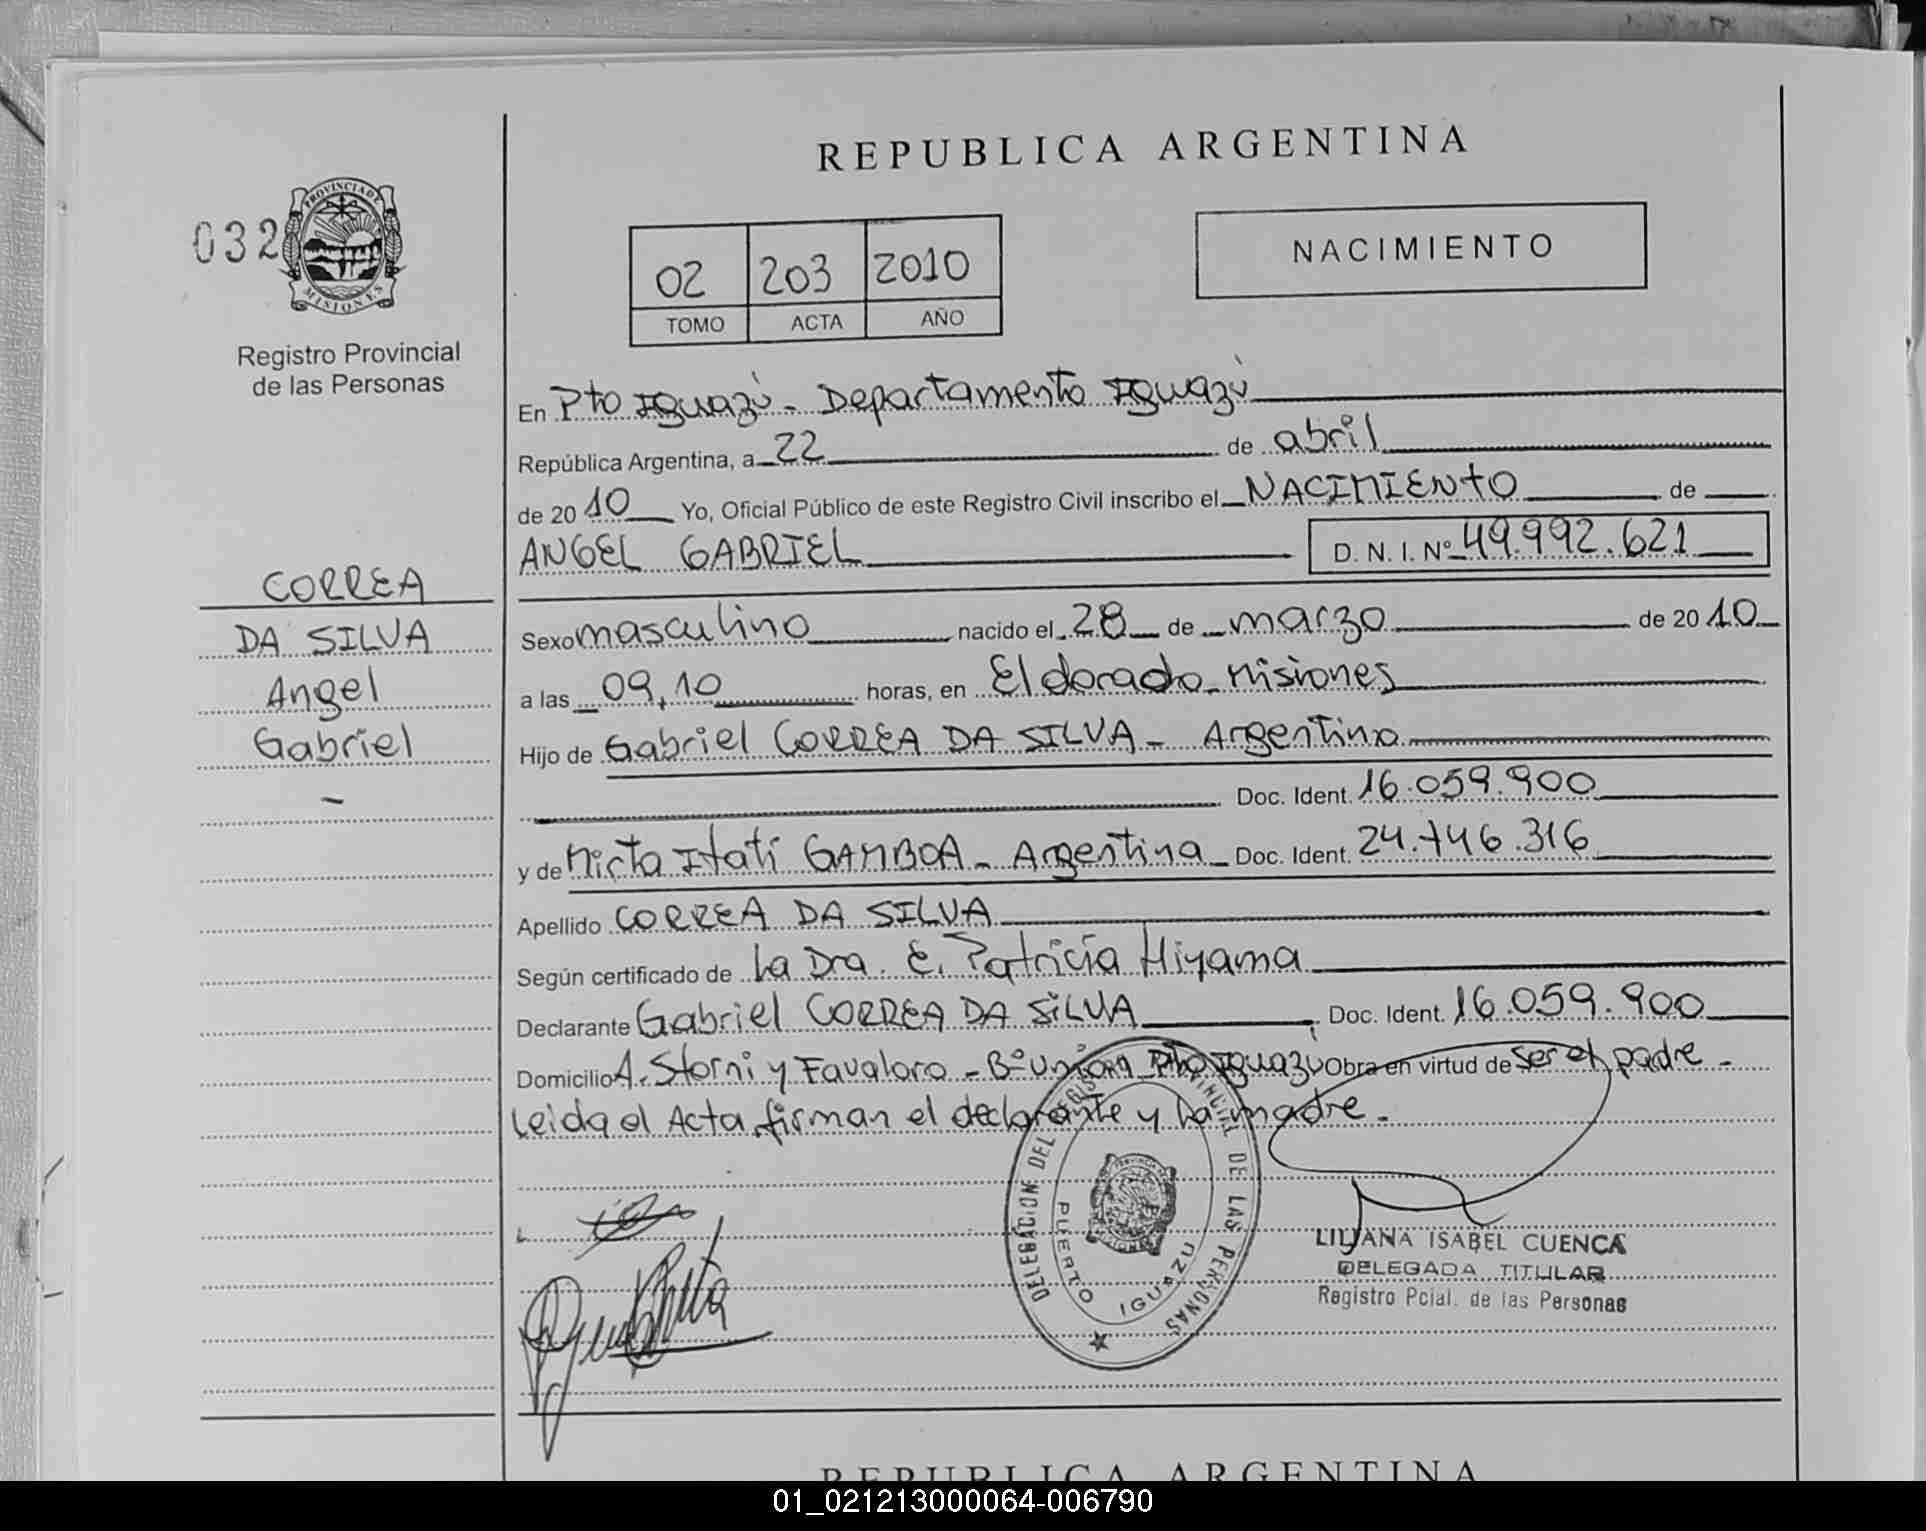 REPUBLICA ARGENTINA
032
PROVINCIA DE
MISIONES
Registro Provincial
de las Personas
02 203 2010
TOMO ACTA AÑO
NACIMIENTO
En Pto Iguazú - Departamento Iguazú
República Argentina, a 22 de abril
de 2010 Yo, Oficial Público de este Registro Civil inscribo el NACIMIENTO de
ANGEL GABRIEL D. N. I. Nº 49.992.621
CORREA
DA SILVA
Angel
Gabriel
-
Sexo masculino nacido el 28 de marzo de 2010
a las 09,10 horas, en Eldorado - Misiones
Hijo de Gabriel CORREA DA SILVA - Argentino
Doc. Ident. 16.059.900
y de Mirta Itatí GAMBOA - Argentina - Doc. Ident. 24.746.316
Apellido CORREA DA SILVA
Según certificado de La Dra. E. Patricia Hiyama
Declarante Gabriel CORREA DA SILVA Doc. Ident. 16.059.900
Domicilio A. Storni y Favaloro - Bº Unión Pto Iguazú Obra en virtud de ser el padre -
Leida el Acta, firman el declarante y La madre.
DELEGACION DEL REGISTRO PROVINCIAL DE LAS PERSONAS
PUERTO IGUAZU
LILIANA ISABEL CUENCA
DELEGADA TITULAR
Registro Pcial. de las Personas
REPUBLICA ARGENTINA
01_021213000064-006790